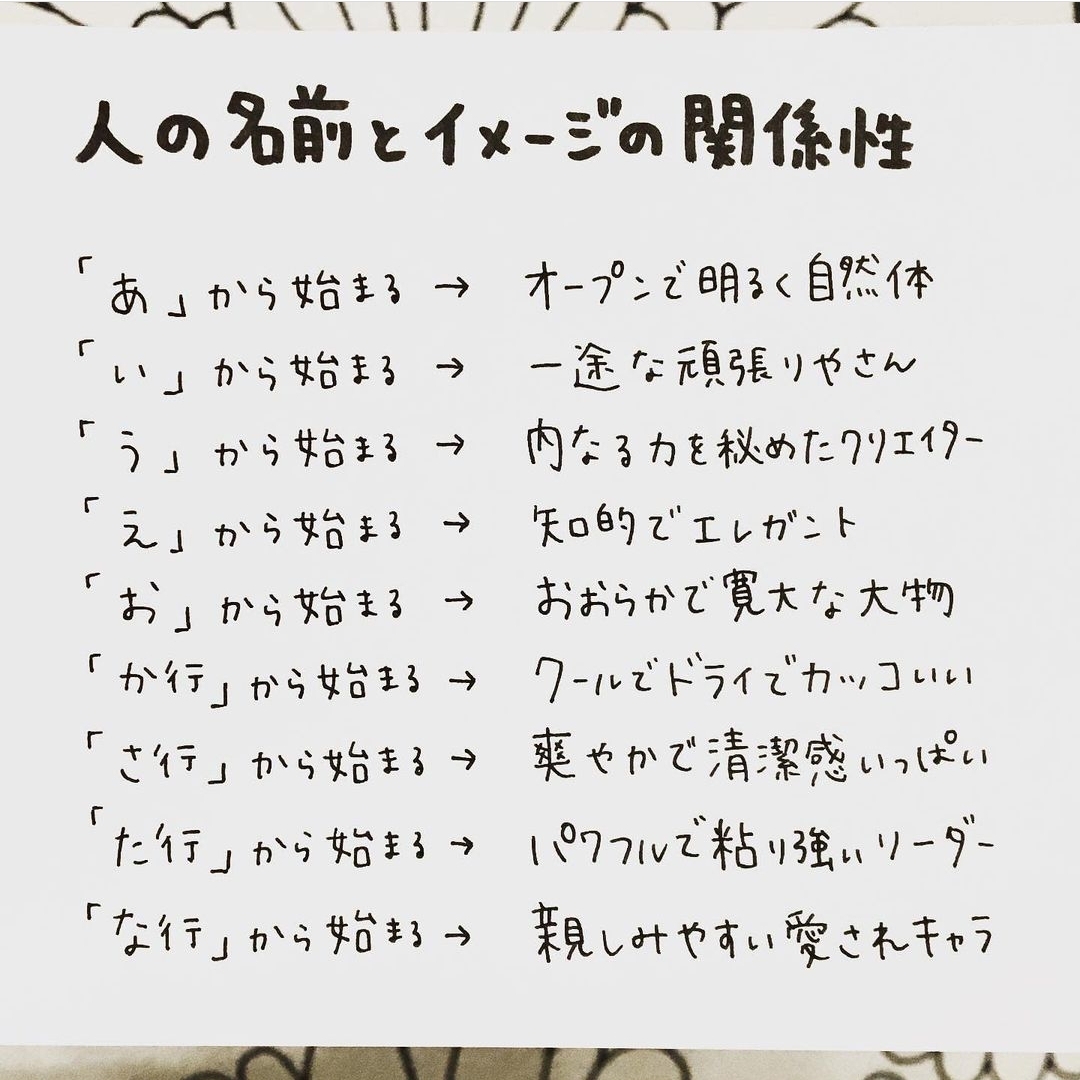 人の名前とイメージの関係性
「あ」から始まる → オープンで明るく自然体
「い」から始まる → 一途な頑張りやさん
「う」から始まる → 内なる力を秘めたクリエイター
「え」から始まる → 知的でエレガント
「お」から始まる → おおらかで寛大な大物
「か行」から始まる → クールでドライでカッコいい
「さ行」から始まる → 爽やかで清潔感いっぱい
「た行」から始まる → パワフルで粘り強いリーダー
「な行」から始まる → 親しみやすい愛されキャラ